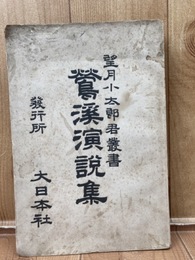 望月小太郎君叢書
鶯溪演説集
發行所
大日本社